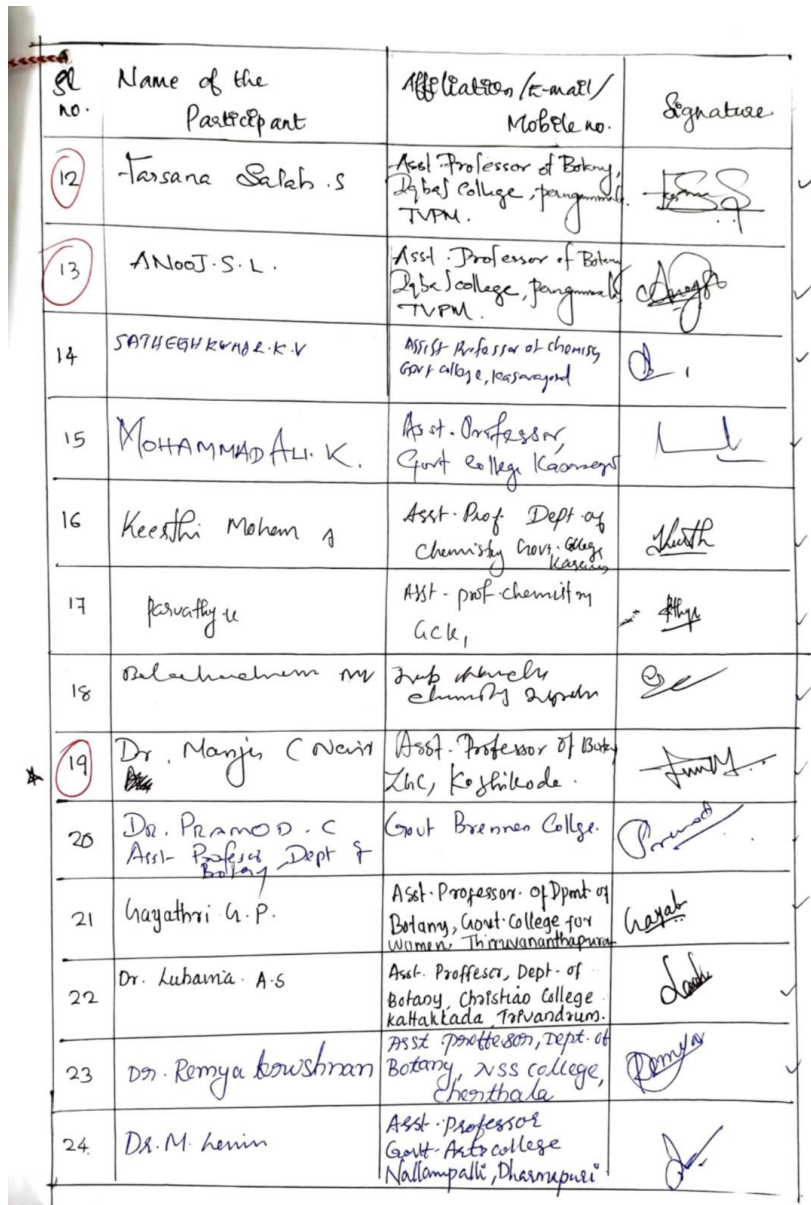 Sl no.
Name of the Participant
Affiliation/E-mail/ Mobile no.
Signature
12
Tarsana Salah.S
Asst. Professor of Botany,
Iqbal College,
TVPM.
13
ANOOJ.S.L.
Asst. Professor of Botany
Iqbal college,
TVPM.
14
SATHEESH KUMAR.K.V
Assist Professor of chemistry
Govt college, Kasaragod
15
MOHAMMAD ALI.K.
Asst. Professor,
Govt College Kasaragod
16
Keerthi Mohan A
Asst. Prof Dept of
Chemistry Govt. College
17
Parvathy K
Asst - prof chemistry
GCK,
18
19
Dr. Manju C Nair
Asst. Professor of Botany
ZGC, Kozhikode.
20
DR. PRAMOD.C
Asst- Professor Dept of
Botany
Govt Brennen Collge.
Pramod
21
Gayathri G.P.
Asst. Professor. of Dpmt of
Botany, Govt. College for
Women, Thiruvananthapuram
Gayat
22
Dr. Lubaina A.S
Asst. Proffesor, Dept. of
Botany, Christian College
Kattakkada, Trivandrum.
23
Dr. Remya Krishnan
Asst proffessor, Dept. of
Botany, NSS college,
Cherthala
Remya
24.
Dr. M. Lenin
Asst. Professor
Govt Arts college
Nallampalli, Dharmapuri